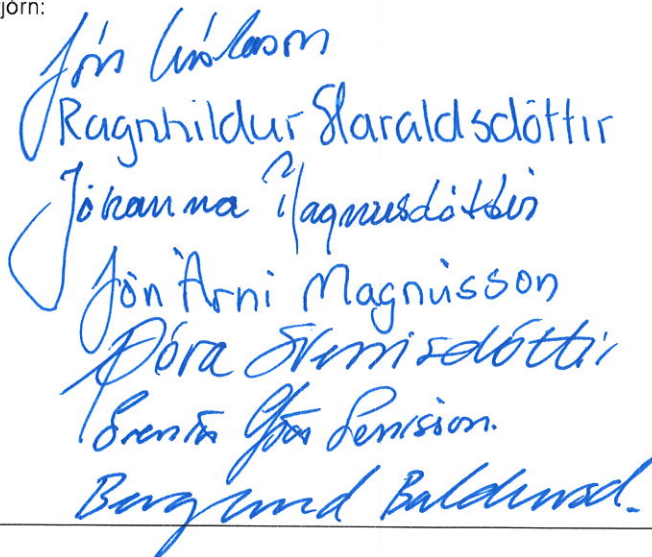 jórn:
Jón
Ragnhildur Haraldsdóttir
Jóhanna Magnusdóttir
Jón Árni Magnússon
Þóra Sverrisdóttir
Sverrir Þór Sverrisson.
Berglind Baldursd.